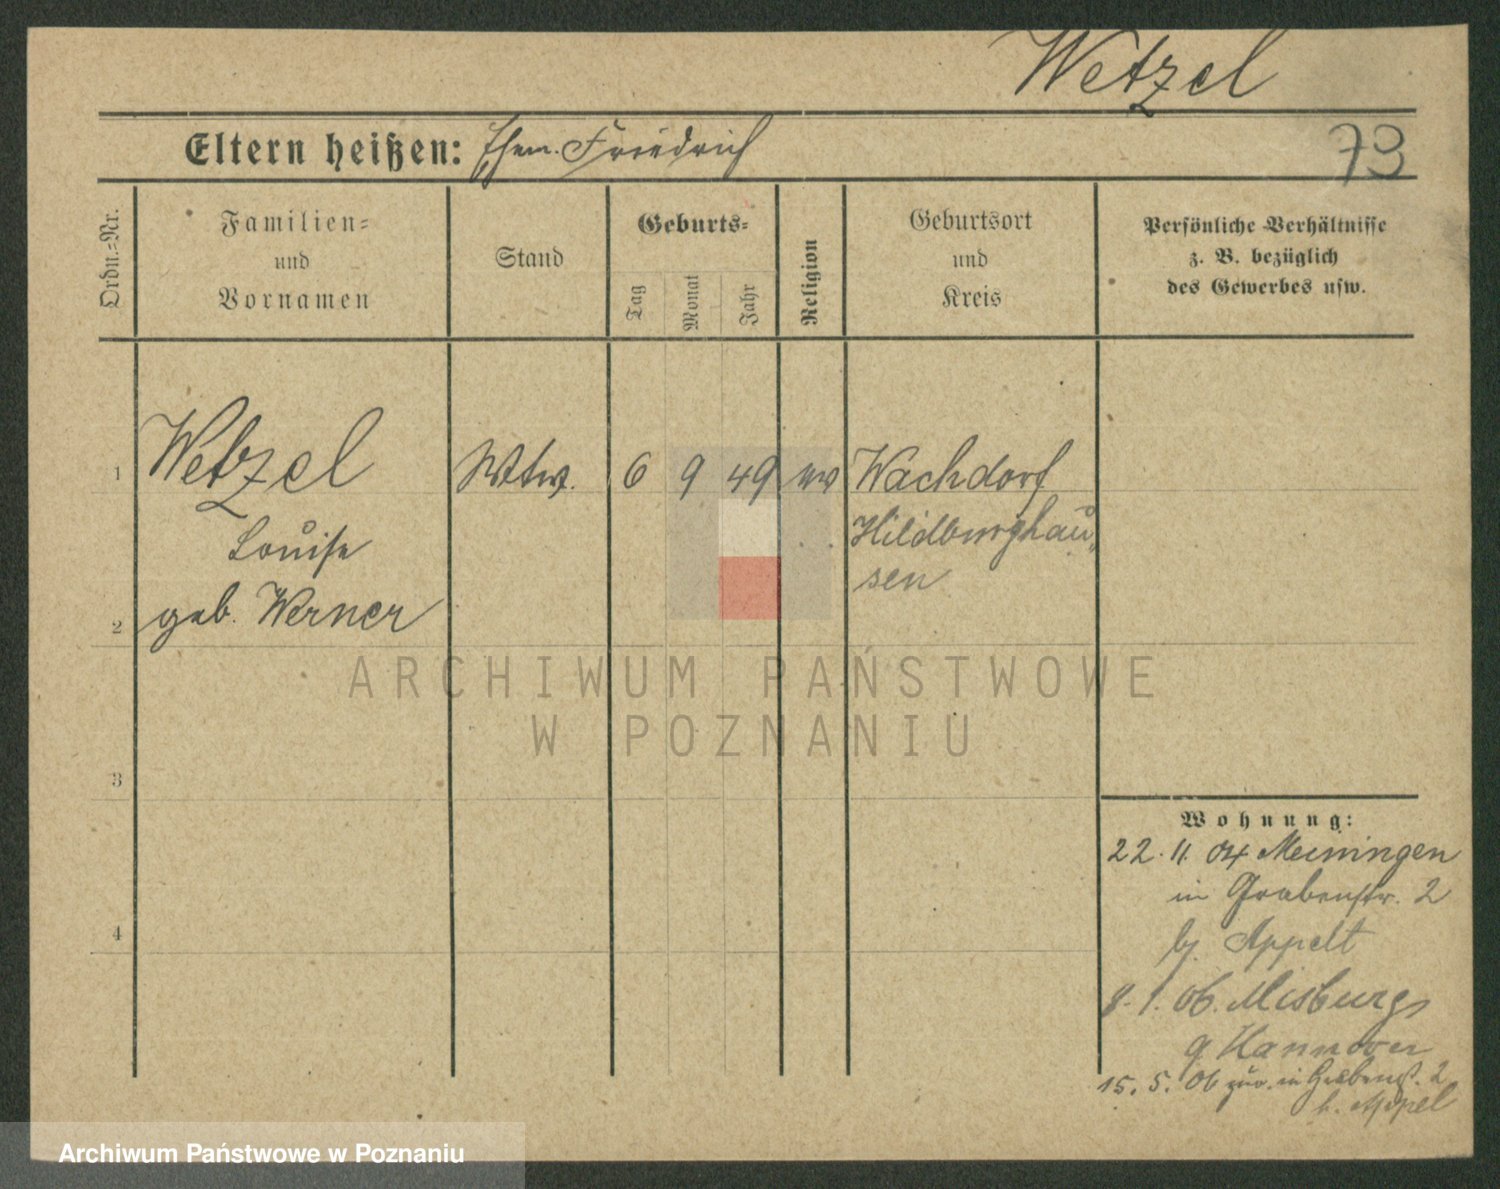 Wetzel
Eltern heißen: Ehem. Friedrich
73
Ordn.-Nr.
Familien-
und
Vornamen
Stand
Geburts-
Tag
Monat
Jahr
Religion
Geburtsort
und
Kreis
Persönliche Verhältnisse
z. B. bezüglich
des Gewerbes usw.
1 Wetzel Wtw. 6 9 49 ev Wachdorf
Louise
Hildburghau-
sen
2 geb. Werner
ARCHIWUM PAŃSTWOWE
W POZNANIU
3
4
Wohnung:
22. 11. 04 Meiningen
in Grabenstr. 2
bj. Appelt
8. 1. 06. Misburg
Hannover
15. 5. 06 zur. in Grabenst. 2
b. Appel
Archiwum Państwowe w Poznaniu